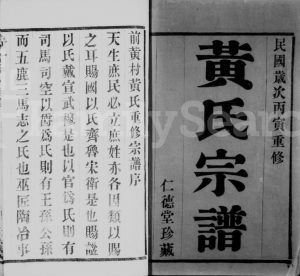 民國歲次丙寅重修
黃氏宗譜
仁德堂珍藏
前黃村黃氏重修宗譜序
天生庶民必立庶姓亦各因類以賜
之耳賜國以氏齊魯宋衛是也賜諡
以氏戴宣武穆是也以官爲氏則有
司馬司空以爵爲氏則有王孫公孫
而五鹿三馬志之氏也巫匠陶冶事